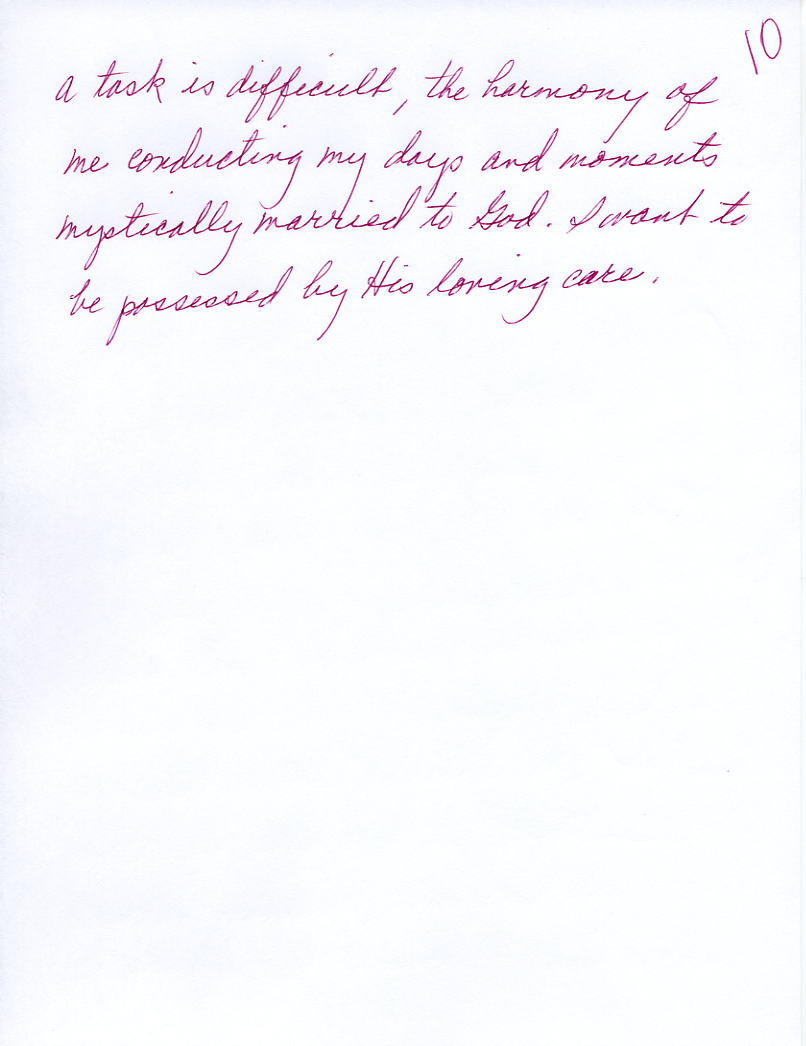 10
a task is difficult, the harmony of
me conducting my days and moments
mystically married to God. I want to
be possessed by His loving care.